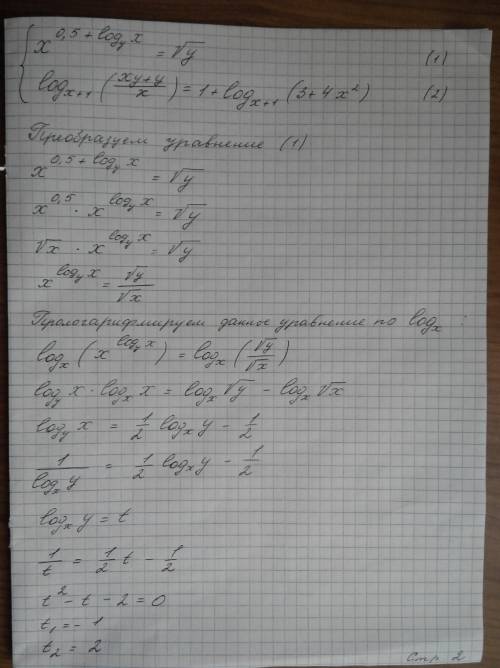 x^(0,5 + log_y x) = √y (1)
log_(x+1) ((xy+y)/x) = 1 + log_(x+1) (3 + 4x²) (2)
Преобразуем уравнение (1)
x^(0,5 + log_y x) = √y
x^0,5 · x^(log_y x) = √y
√x · x^(log_y x) = √y
x^(log_y x) = √y/√x
Прологарифмируем данное уравнение по log_x :
log_x (x^(log_y x)) = log_x (√y/√x)
log_y x · log_x x = log_x √y - log_x √x
log_y x = 1/2 log_x y - 1/2
1/(log_x y) = 1/2 log_x y - 1/2
log_x y = t
1/t = 1/2 t - 1/2
t² - t - 2 = 0
t₁ = - 1
t₂ = 2
Стр 2